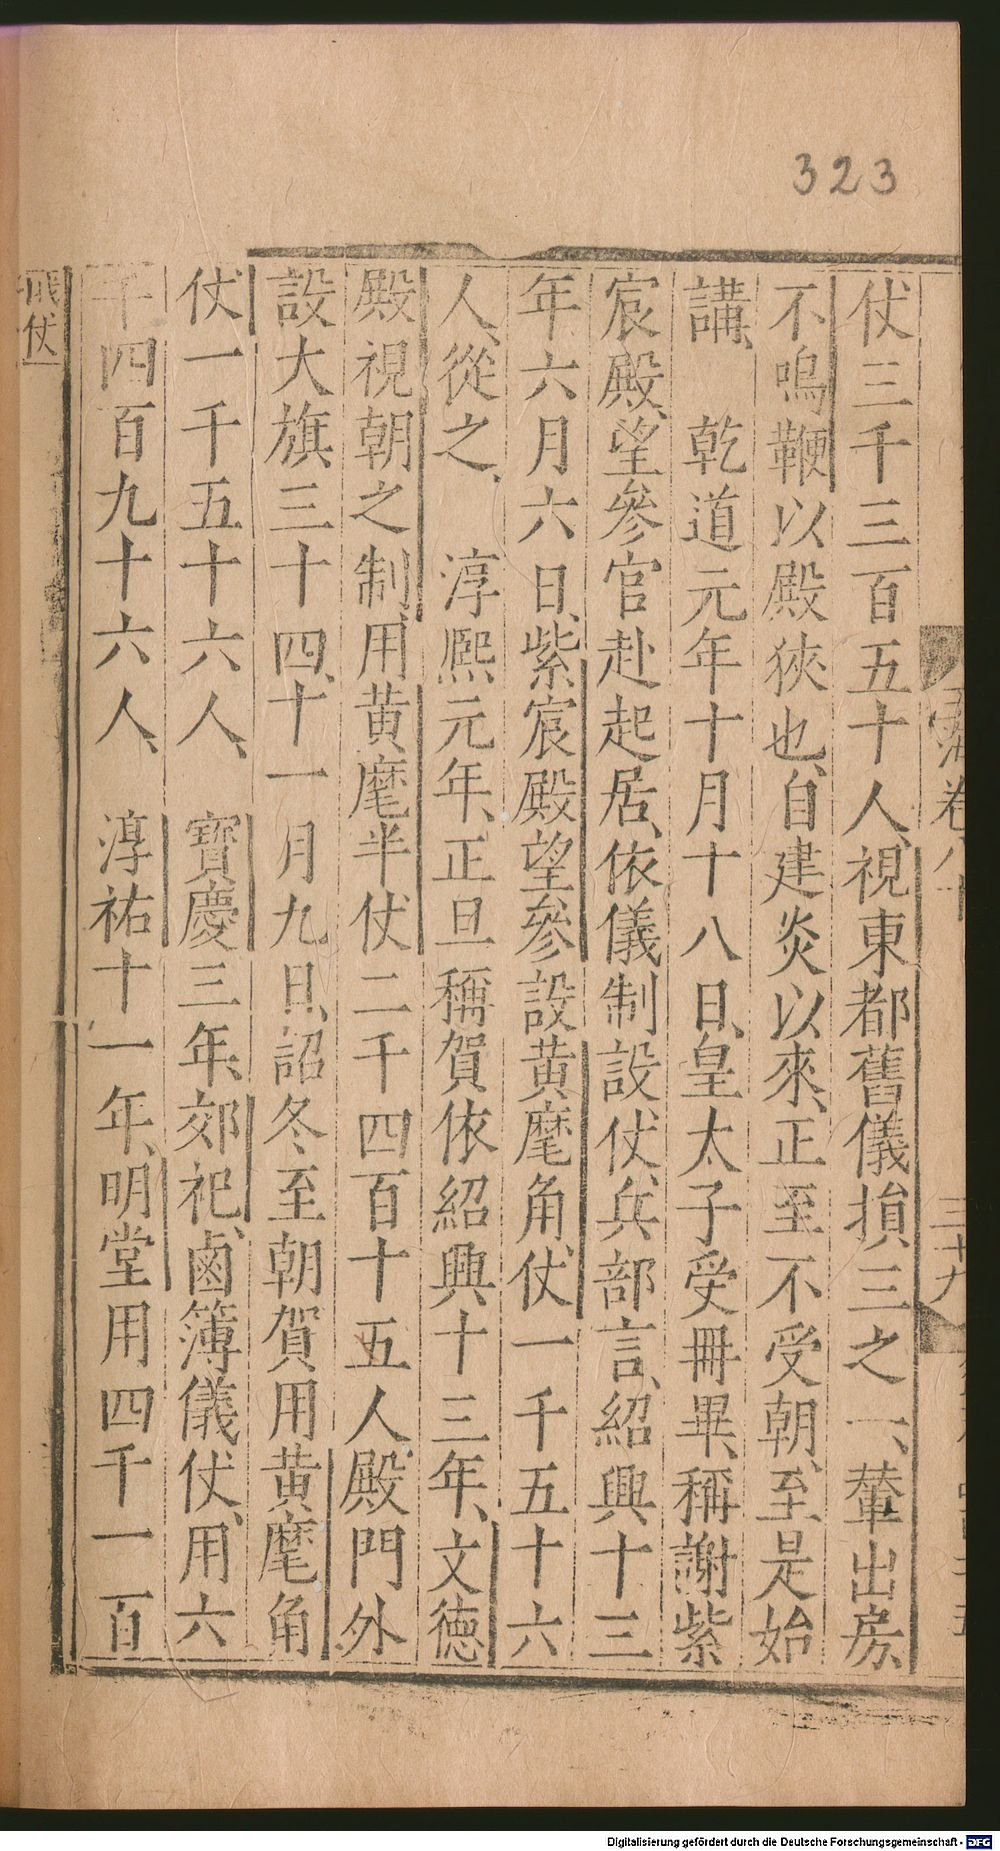 323
仗三千三百五十人、視東都舊儀損三之一、輦出房、
不鳴鞭以殿狹也、自建炎以來、正至不受朝、至是始
講、　乾道元年十月十八日、皇太子受冊畢、稱謝紫
宸殿、望參官赴起居、依儀制設仗、兵部言、紹興十三
年六月六日、紫宸殿望參設黃麾角仗、一千五十六
人、從之、　淳熙元年、正旦稱賀依紹興十三年、文德
殿視朝之制、用黃麾半仗二千四百十五人、殿門外
設大旗三十四、十一月九日、詔冬至朝賀用黃麾角
仗一千五十六人、　寶慶三年、郊祀、鹵簿儀仗、用六
千四百九十六人、　淳祐十一年、明堂用四千一百
儀仗
卷八十
三十九
Digitalisierung gefördert durch die Deutsche Forschungsgemeinschaft - DFG